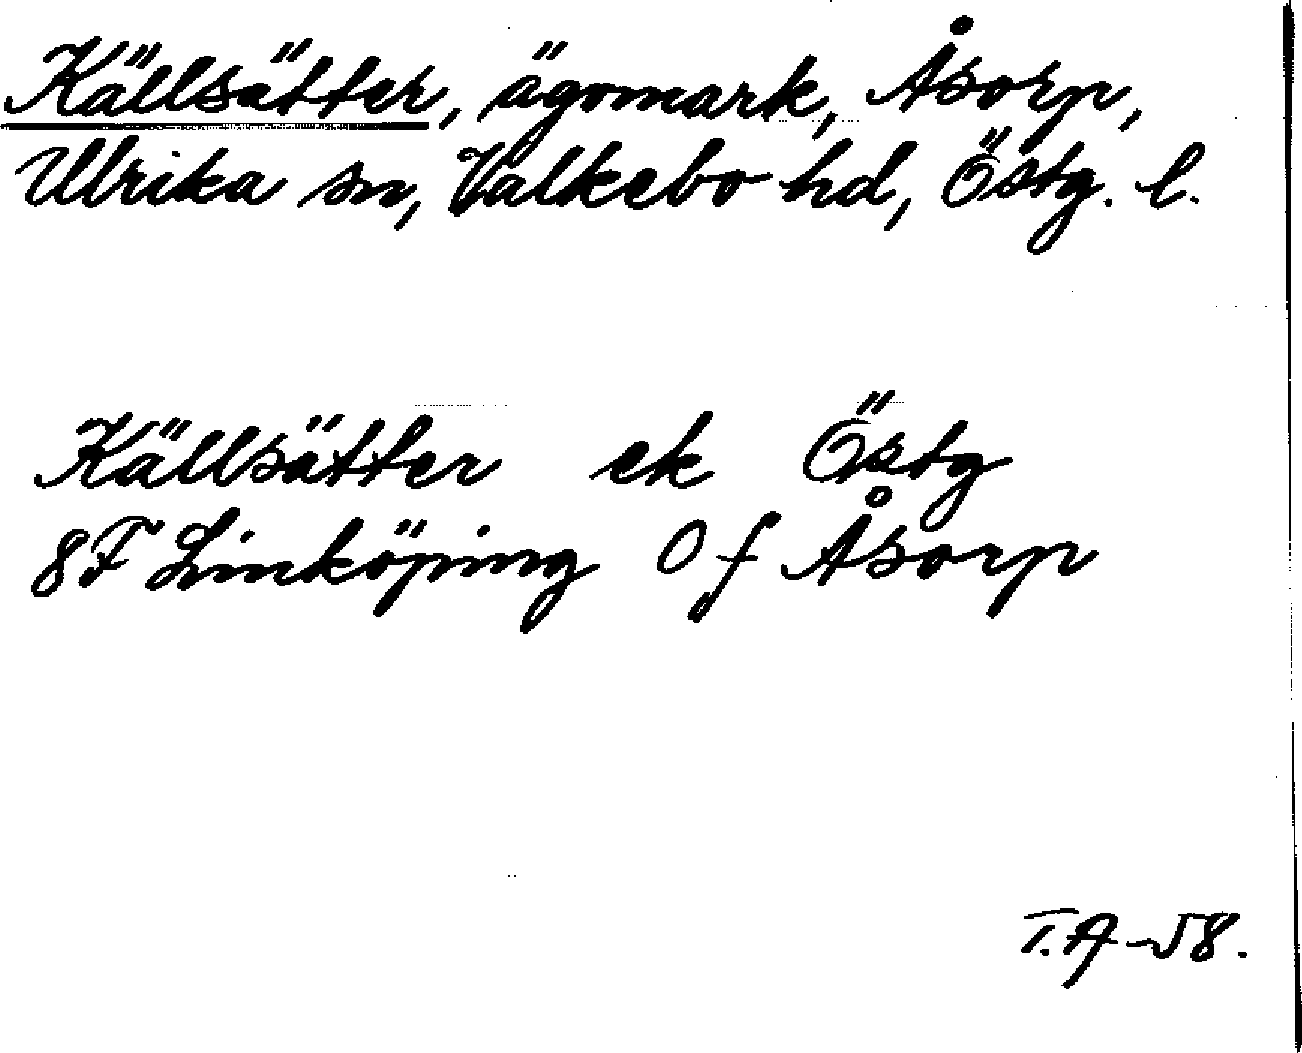 Källsätter, ägomark, Åsorp,
Ulrika sn, Valkebo hd, Östg. l.
Källsätter ek Östg
8F Linköping 0 f Åsorp
T.A-58.